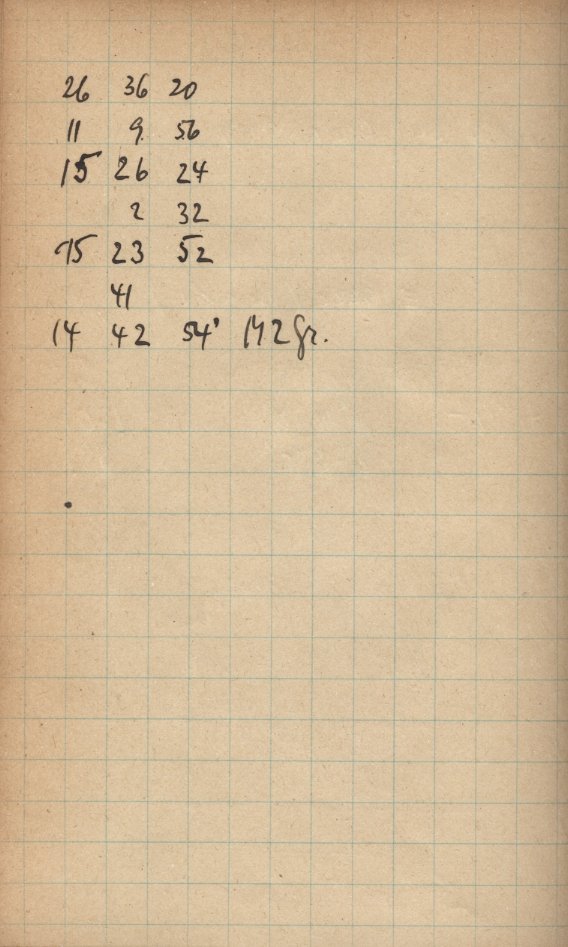 26 36 20
11 9 56
15 26 24
2 32
15 23 52
41
14 42 54' 142 gr.